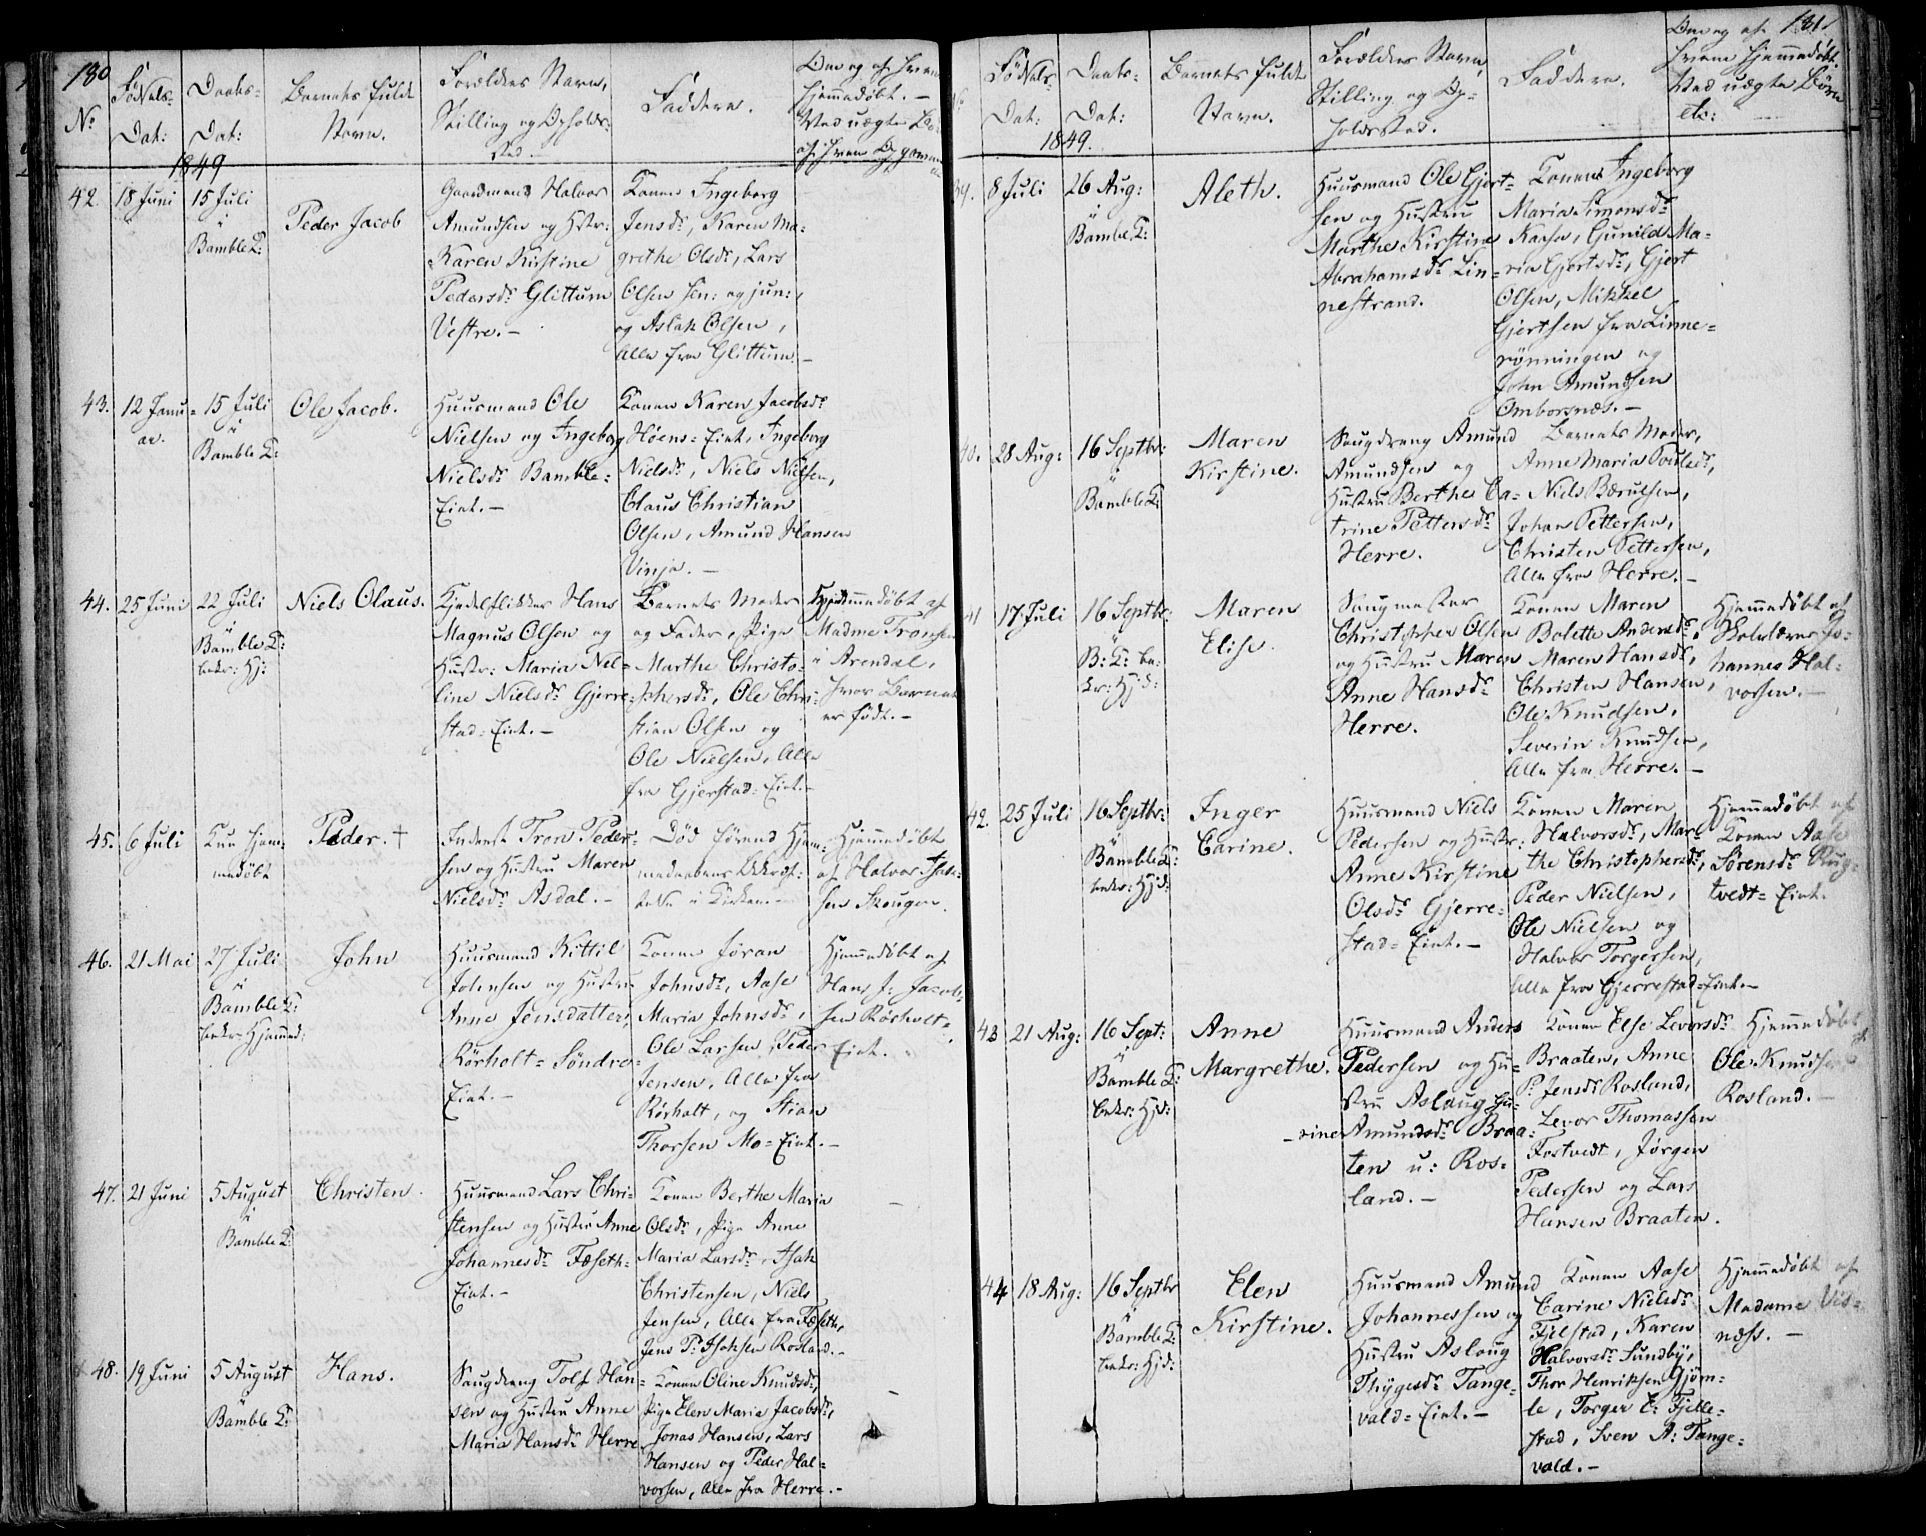 180
No
Fødsels-
Dat:
Daabs-
Dat:
Barnets fulde
Navn.
Forældres Navn,
Stilling og Opholds-
sted.
Faddere.
Om og af hvem
hjemmedøbt. –
1849
42. 18 Juni 15 Juli
i
Bamble K:
Peder Jacob
Gaardmand Halvor
Amundsen og Hstr:
Karen Kirstine
Pedersdr. Glittum
Vestre. –
Konen Ingeborg
Jensdr., Karen Ma-
grethe Olsdr, Lars
Olsen sen: og jun:,
og Aslak Olsen,
Alle fra Glittum –
43. 12 Janu-
ar.
15 Juli
i
Bamble K:
Ole Jacob.
Huusmand Ole
Nielsen og Ingeborg
Nielsdr. Bamble-
Eint. –
Konen Karen Jacobsdr
Höens-Eint, Ingeborg
Nielsdr., Niels Nielsen,
Claus Christian
Olsen, Amund Hansen
Vinje. –
44. 25 Juni 22 Juli
i
Bamble K:
bekr: Hj:
Niels Olaus.
Kjedelflikker Hans
Magnus Olsen og
Hustr: Maria Nel-
line Nielsdr. Gjerre-
stad-Eint. –
Barnets Moder
og Fader, Pige
Marthe Christo-
phersdr., Ole Chri-
stian Olsen og
Ole Nielsen, Alle
fra Gjerstad-Eint. –
Hjemmedøbt af
Madme Tronsen
i Arendal,
hvor Barnet
er født. –
45. 6 Juli Kun hjem-
medøbt
Peder. +
Inderst Tron Peder-
sen og Hustru Maren
Nielsdr. Asdal. –
Død førend Hjem-
medaabens Bekræf-
telse i Kirken. –
Hjemmedøbt
af Halvor Isak-
sen Skougen.
46. 21 Mai 27 Juli
i
Bamble K:
bekr: Hjemmed:
John
Huusmand Kittil
Johnsen og Hustru
Anne Jensdatter,
Rörholt-Söndre-
Eint. –
Konen Jøran
Johnsdr., Aase
Maria Johnsdr.,
Ole Larsen, Peder
Jensen, Alle fra
Rörholt, og Stian
Thorsen Mo-Eint. –
Hjemmedøbt af
Hans J: Jacob-
sen Rörholt-
Eint.
47. 21 Juni 5 August
i
Bamble K:
Christen.
Huusmand Lars Chri-
stensen og Hustru Anne
Johannesdr. Foseth-
Eint. –
Konen Berthe Maria
Olsdr., Pige Anne
Maria Larsdr., Isak
Christensen, Niels
Jensen, Alle fra Foseth,
Jens P. Isaksen Rosland. –
–
48. 19 Juni 5 August
i
Bamble K:
Hans.
Saugdreng Tolf Han-
sen og Hustru Anne
Maria Hansdr. Herre
Konen Oline Knudsdr.,
Pige Elen Maria Jacobsdr.,
Jonas Hansen, Lars
Hansen og Peder Hal-
vorsen, Alle fra Herre. –
–
181
Fødsels-
Dat:
Daabs-
Dat:
Barnets fulde
Navn.
Forældres Navn,
Stilling og Op-
holdssted.
Faddere.
Om og af
hvem hjemmedøbt.
Ved uægte Børn
etc:
1849.
39. 8 Juli 26 Aug:
i
Bamble K:
Aleth.
Huusmand Ole Gjert-
sen og Hustru
Marthe Kirstine
Abrahamsdr. Lin-
nestrand.
Konen Ingeborg
Maria Simonsdr.
Kaasa, Gunild Ma-
ria Gjertsdr., Gjert
Olsen, Mikkel
Gjertsen fra Linne-
rønningen og
John Amundsen
Omborsnæs. –
40. 28 Aug: 16 Septbr:
i
Bamble K:
Maren
Kirstine.
Saugdreng Amund
Amundsen og
Hustru Berthe Ca-
trine Pettersdr.
Herre.
Barnets Moder,
Anne Maria Poulsdr.,
Niels Børulsen,
Johan Pettersen,
Christen Pettersen,
Alle fra Herre. –
41 17 Juli 16 Septbr:
i
B: K: be-
kr: Hjd:
Maren
Elise.
Saugmester
Christopher Olsen
og Hustru Maren
Anne Hansdr.
Herre.
Konen Maren
Bolette Andersdr.,
Maren Hansdr.,
Christen Hansen,
Ole Knudsen,
Severin Knudsen,
Alle fra Herre. –
Hjemmedøbt af
Skolelærer Jo-
hannes Hal-
vorsen. –
42. 25 Juli 16 Septbr:
i
Bamble K:
bekr: Hjd:
Inger
Carine.
Huusmand Niels
Pedersen og Hustr:
Anne Kirstine
Olsdr. Gjerre-
stad-Eint. –
Konen Maren
Halvorsdr., Mar-
the Christophersdr.,
Peder Nielsen,
Ole Nielsen og
Halvor Torgersen,
Alle fra Gjerrestad-Eint. –
Hjemmedøbt af
Konen Aase
Sørensdr. Rug-
tvedt-Eint.
43 21 Aug: 16 Sept:
i
Bamble K:
bekr: Hjd:
Anne
Margrethe.
Huusmand Anders
Pedersen og Hu-
stru Aslaug Gu-
rine Amundsdr. Braa-
ten u: Ros-
land. –
Konen Else Levorsdr.
Braaten, Anne
P. Jensdr Rosland,
Levor Thomassen
Tostvedt, Jørgen
Pedersen og Lars
Hansen Braaten.
Hjemmedøbt
af
Ole Knudsen
Rosland. –
44 18 Aug: 16 Septbr
i
Bamble K:
bekr: Hjd:
Elen
Kirstine.
Huusmand Amund
Johannessen og
Hustru Aslaug
Thygesdr. Tange-
vald-Eint. –
Konen Aase
Carine Nielsdr.
Fjelstad, Karen
Halvorsdr. Sundby,
Thor Henriksen Gjöm-
le, Torger E: Fjelle-
stad, Sven A: Tange-
vald. –
Hjemmedøbt af
Madame Vis-
næss. –